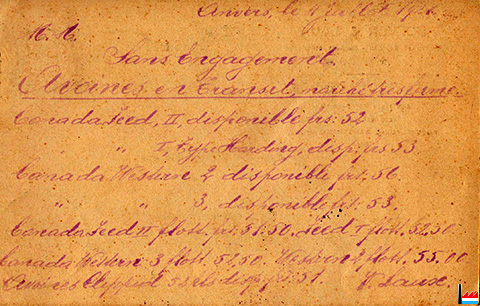 Anvers, le 4 Juillet
M. C.
Sans Engagement.
Avoines en transit, marché très ferme.
Canada feed, II, disponible frs: 52
" I, type Harding, disp: frs 53
Canada Western 2 disponible frs: 56
" " 3, disponible frs: 53.
Canada feed II flott. frs: 51.50, feed I flott. 52.50
Canada Western 3 flott. 52.50, Western 2 flott. 55.00
Avoines Clipped 38 lbs disp: frs: 51. V. Laux.